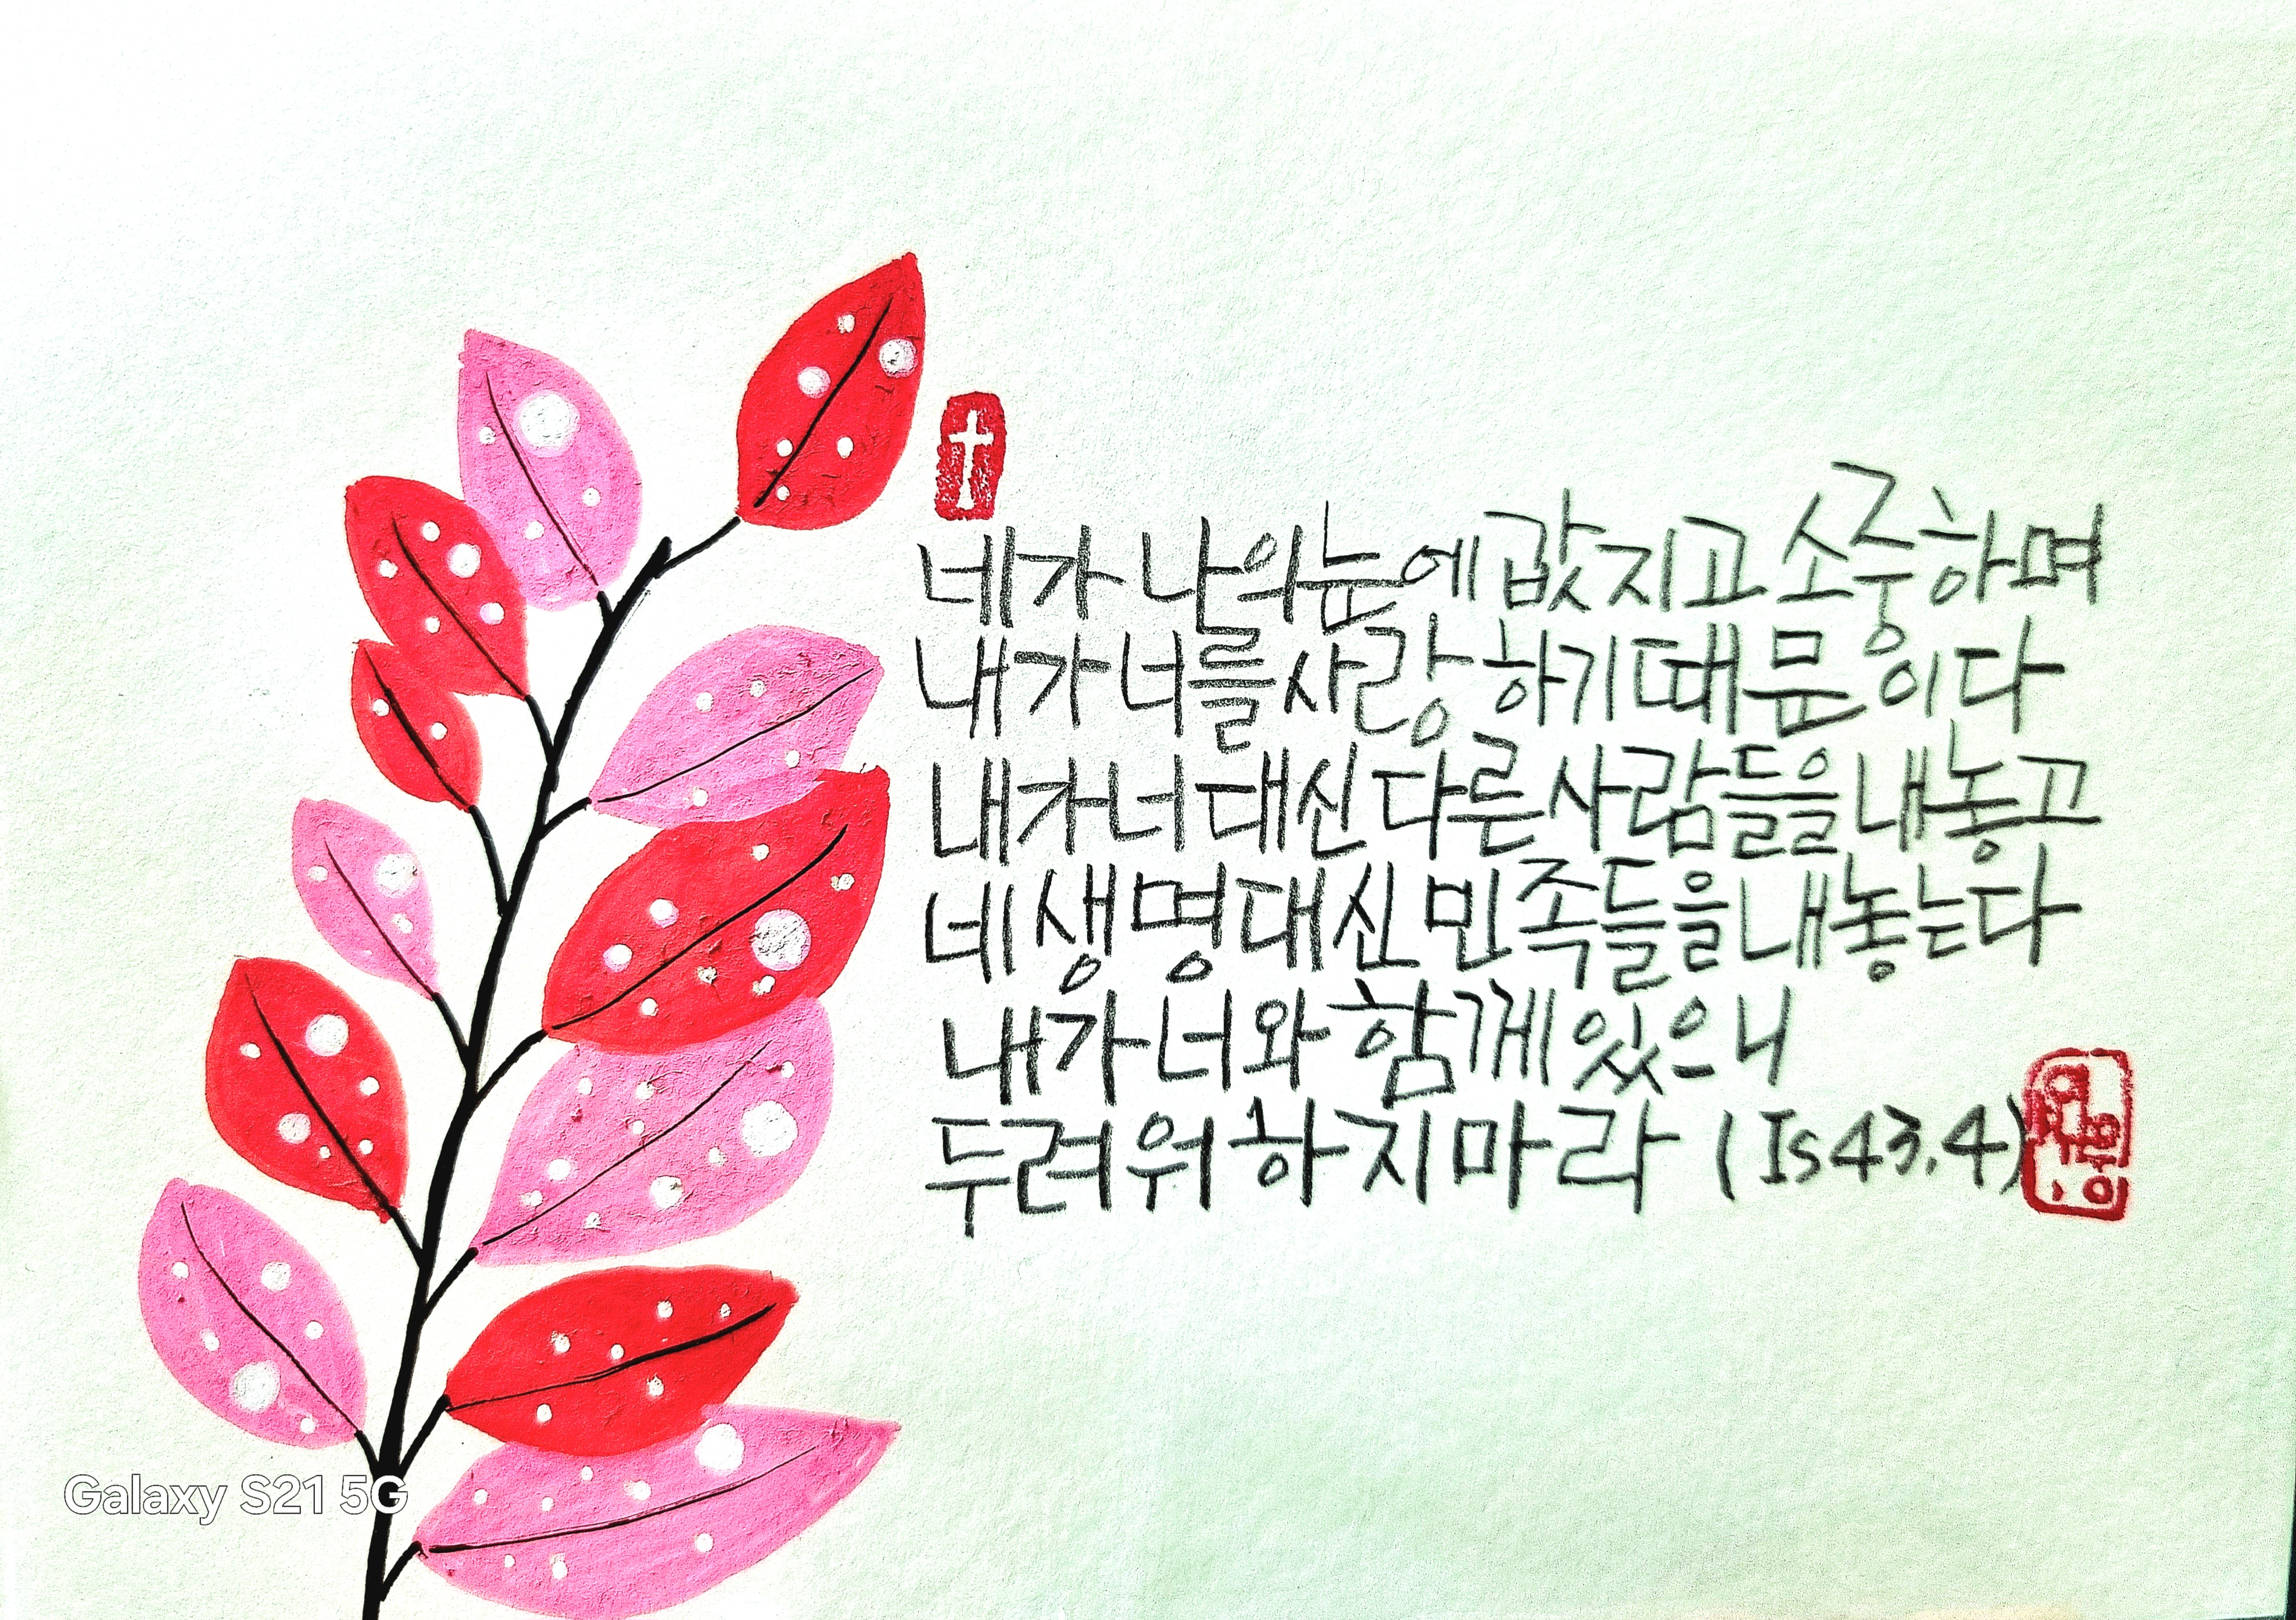 네가 나의 눈에 값지고 소중하며
내가 너를 사랑하기 때문이다
내가 너 대신 다른 사람들을 내놓고
네 생명 대신 민족들을 내놓는다
내가 너와 함께 있으니
두려워하지 마라 (Is 43,4)
Galaxy S21 5G